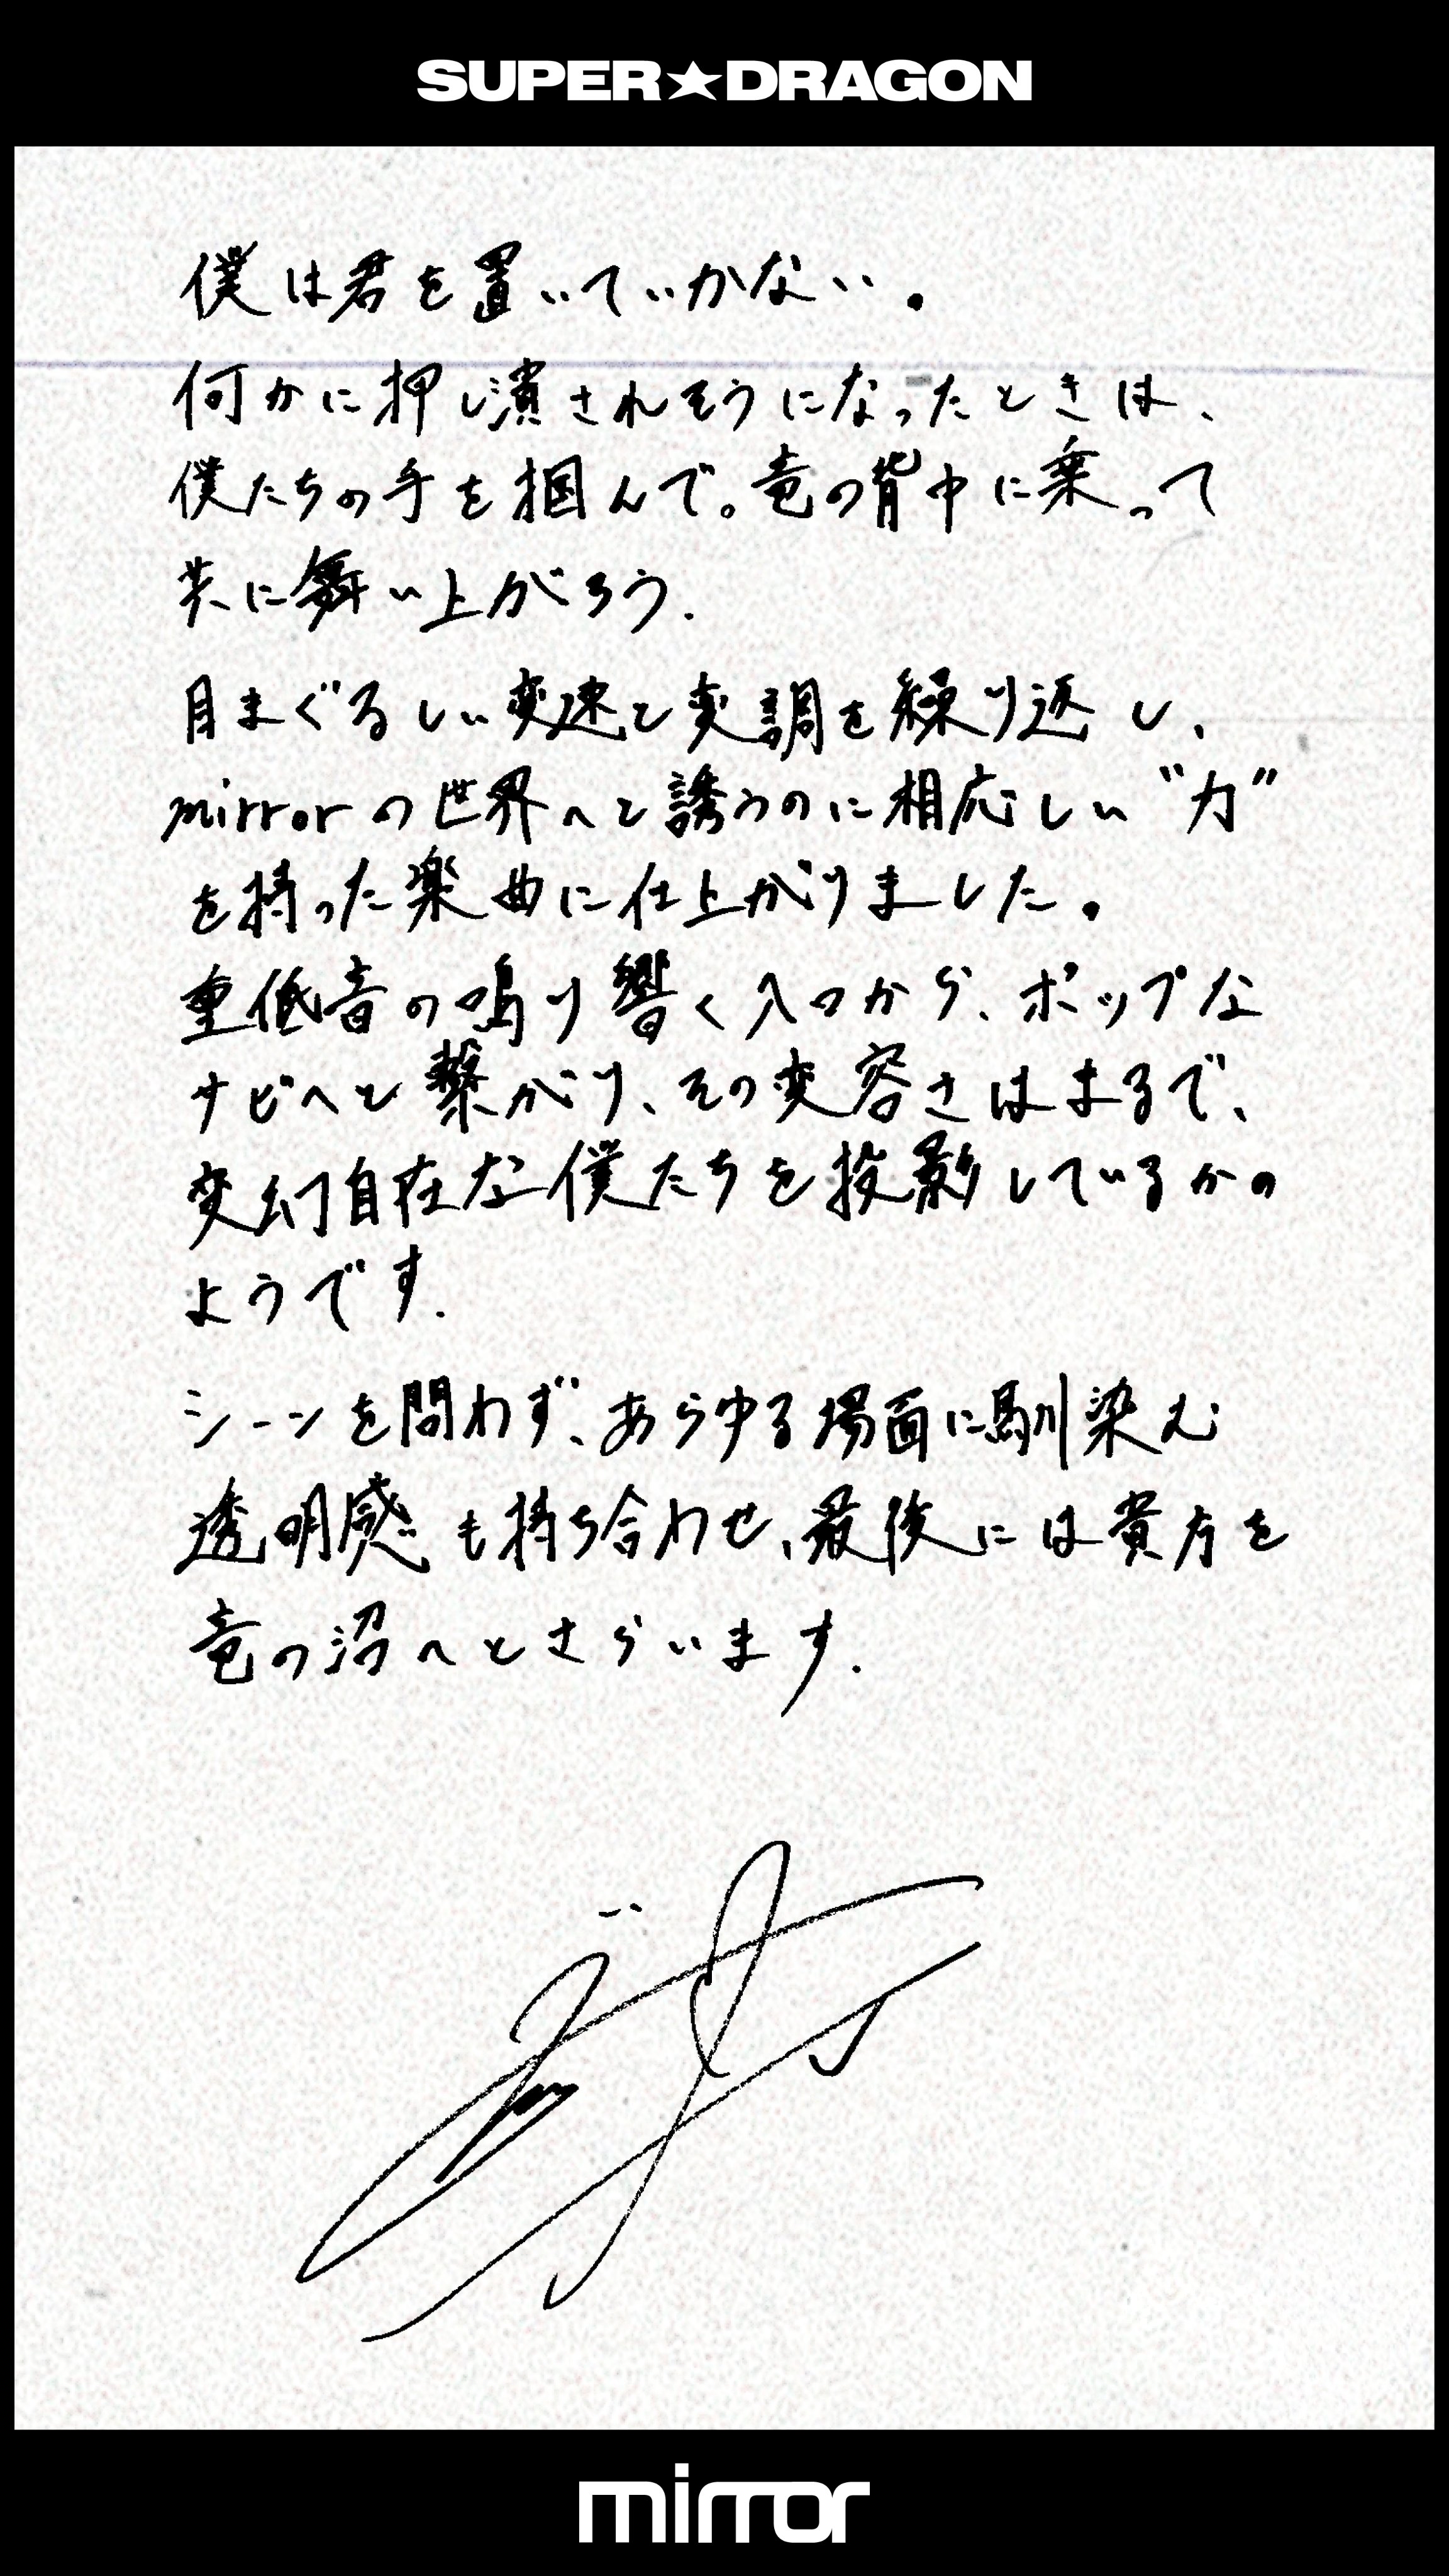 SUPER★DRAGON
僕は君を置いていかない。
何かに押し潰されそうになったときは、
僕たちの手を掴んで。竜の背中に乗って
共に舞い上がろう.
目まぐるしい変速と変調を繰り返し、
mirrorの世界へと誘うのに相応しい“力”
を持った楽曲に仕上がりました。
重低音の鳴り響く入口から、ポップな
サビへと繋がり、その変容さはまるで、
変幻自在な僕たちを投影しているかの
ようです.
シーンを問わず、あらゆる場面に馴染む
透明感も持ち合わせ、最後には貴方を
竜の沼へとさらいます.
mirror